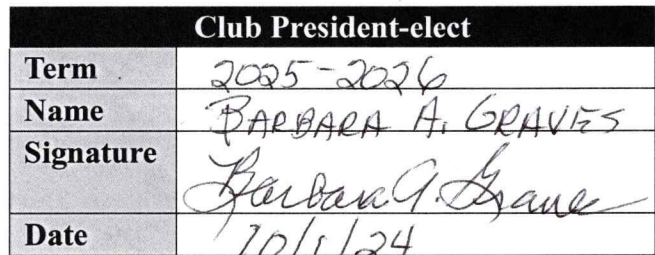 Club President-elect
Term 2025-2026
Name BARBARA A. GRAVES
Signature Barbara A. Graves
Date 10/1/24